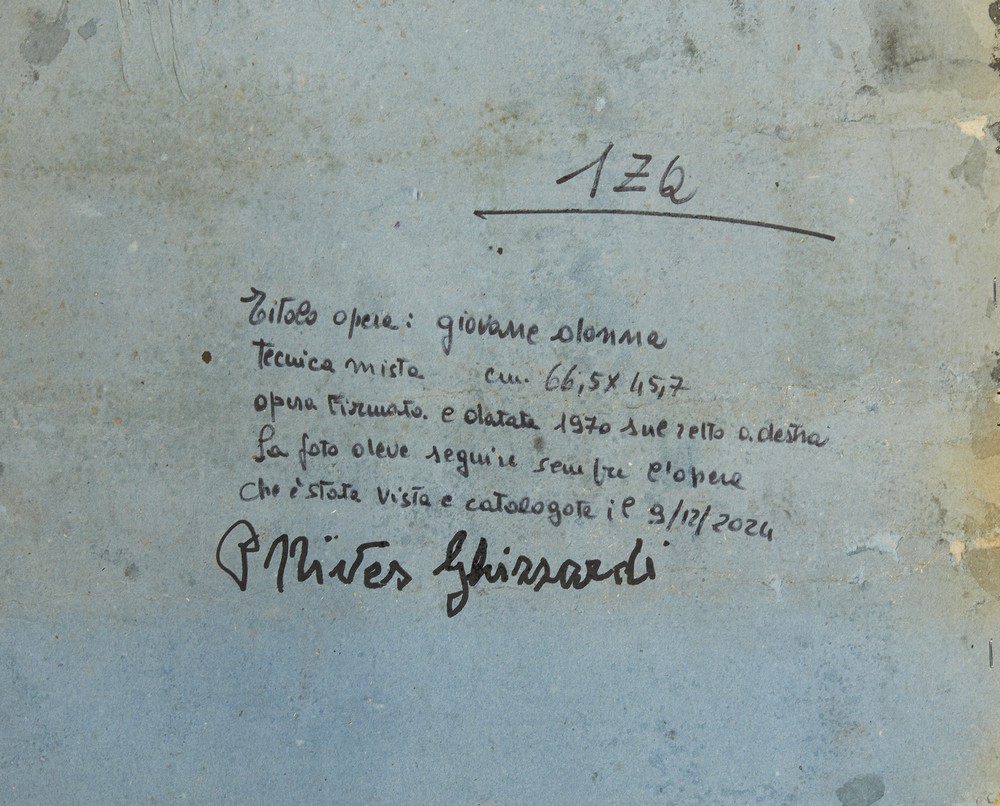 1ZQ
Titolo opera: giovane donna
tecnica mista cm. 66,5x45,7
opera firmata. e datata 1970 sul retto a.destra
La foto deve seguire sempre l'opera
che è stata vista e catalogata il 9/12/2024
P Nives Ghizzardi